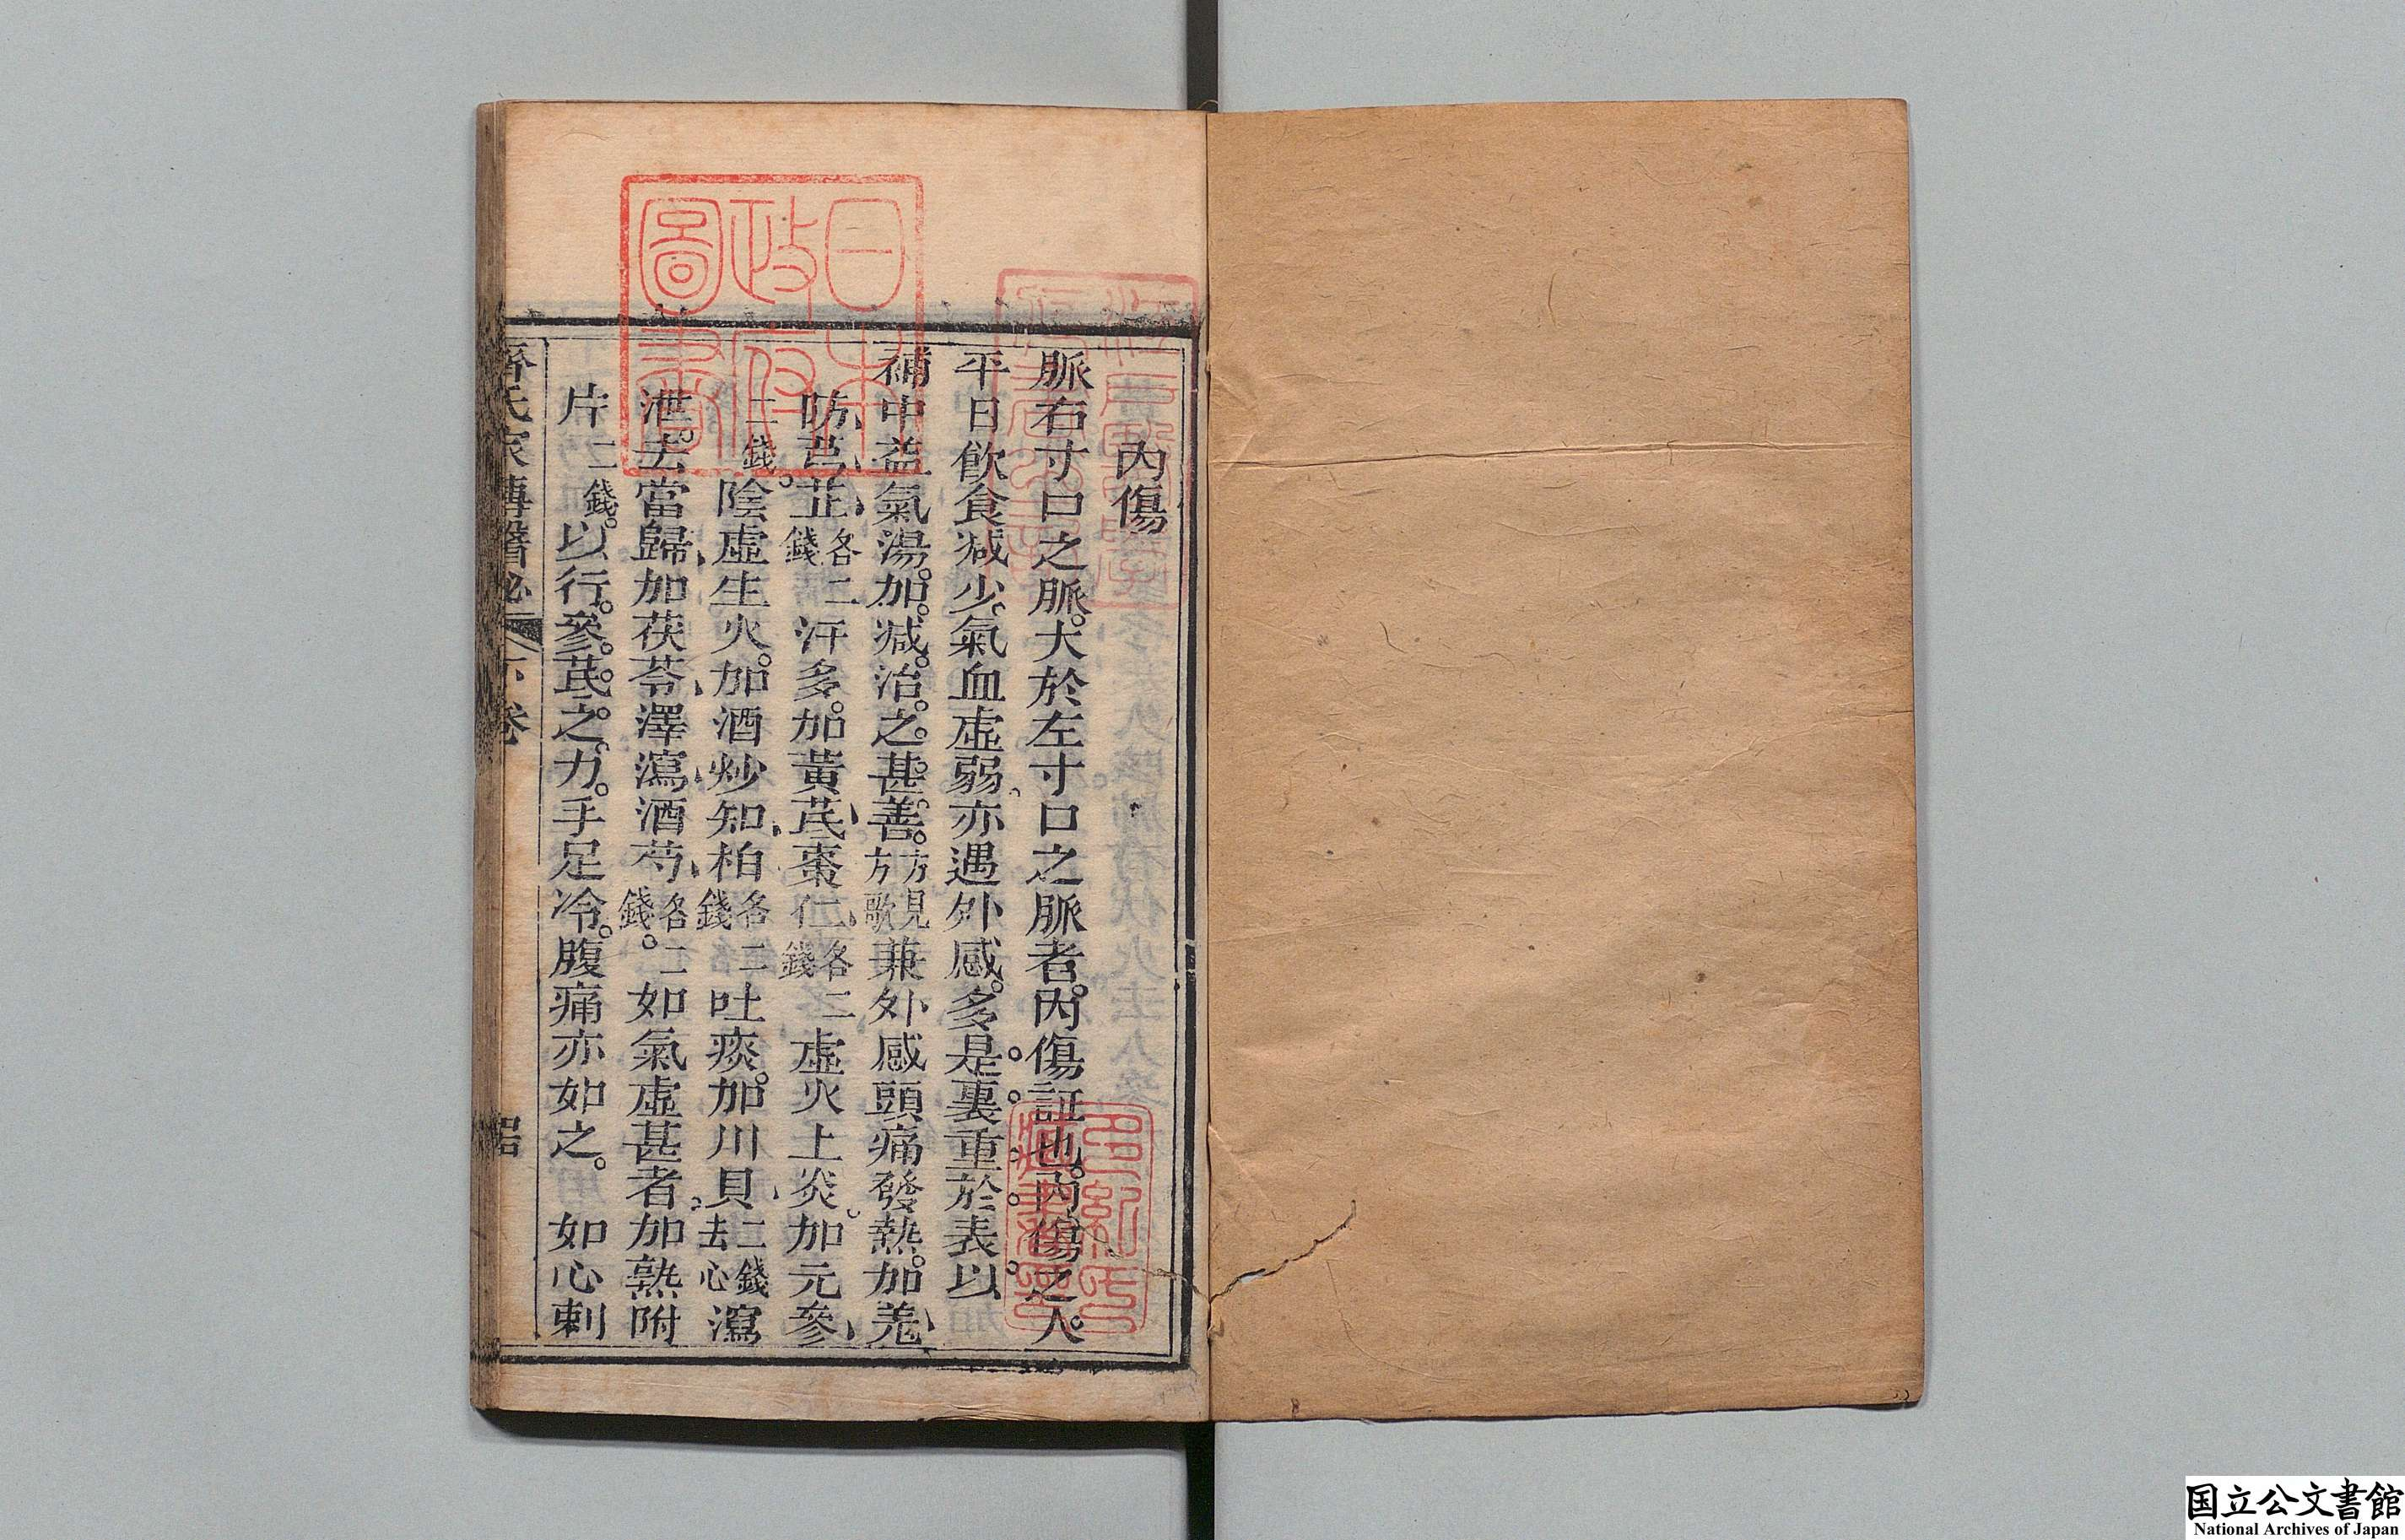 內傷
脈右寸口之脈。大於左寸口之脈者。內傷証也。內傷之人。
平日飲食減少。氣血虛弱。亦遇外感。多是裏重於表。以
補中益氣湯。加。減。治。之。甚。善。方見方歌兼外感頭痛發熱。加羗
防、芎、芷、各二錢汗多。加黃芪、棗仁、各二錢虛火上炎。加元參、
二錢。陰虛生火。加酒炒知、柏各二錢吐痰。加川貝、二錢去心瀉
泄。去當歸、加茯苓、澤瀉、酒芍、各二錢。如氣虛甚者。加熟附
片二錢。以行。參。芪。之。力。手足冷。腹痛亦如之。如心刺
齊氏家傳醫秘 下卷
日本政府圖書
江戶醫學
多紀氏藏書印
国立公文書館
National Archives of Japan